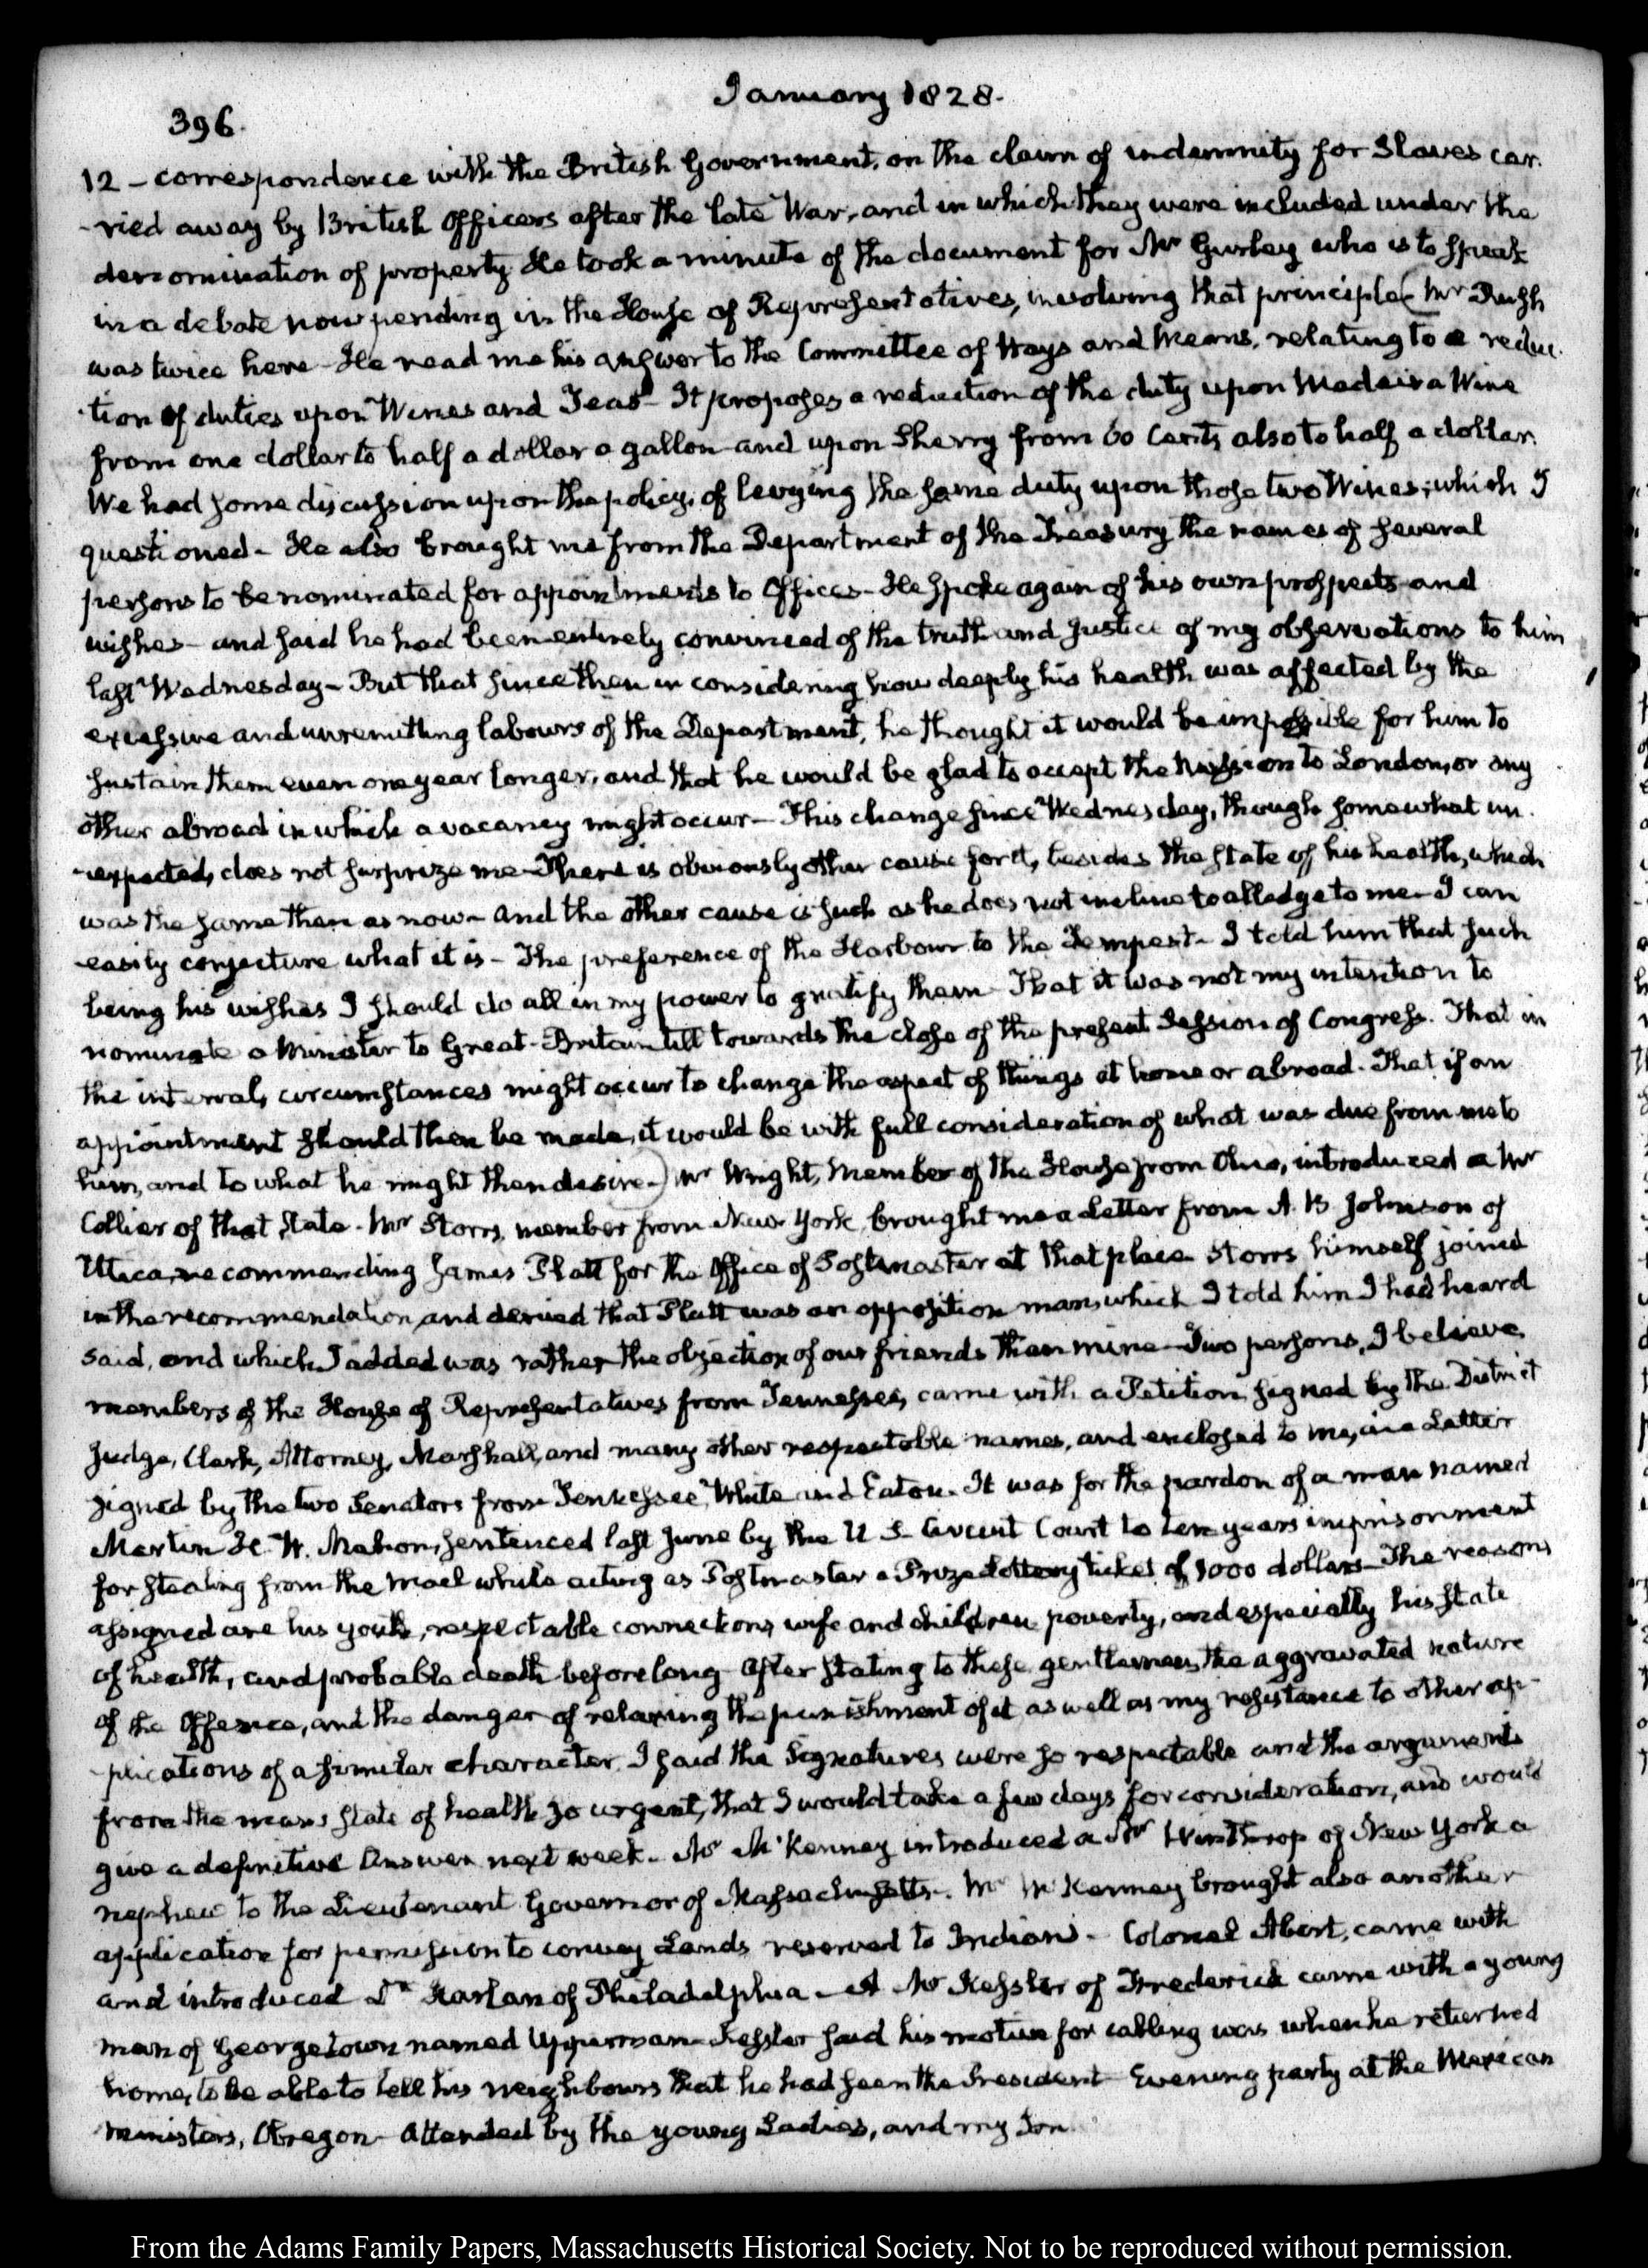 January 1828.
396.
12 – correspondence with the British Government, on the claim of indemnity for Slaves car-
-ried away by British Officers after the late War, and in which they were included under the
denomination of property. He took a minute of the document for Mr Gurley who is to speak
in a debate now pending in the House of Representatives, involving that principle. (Mr Rush
was twice here – He read me his answer to the Committee of Ways and Means, relating to a reduc-
-tion of duties upon Wines and Teas – It proposes a reduction of the duty upon Madeira Wine
from one dollar to half a dollar a gallon – and upon Sherry from 60 Cents also to half a dollar.
We had some discussion upon the policy of levying the same duty upon those two Wines; which I
questioned – He also brought me from the Department of the Treasury the names of several
persons to be nominated for appointments to Offices – He spoke again of his own prospects and
wishes – and said he had been entirely convinced of the truth and justice of my observations to him
last Wednesday – But that since then in considering how deeply his health was affected by the
excessive and unremitting labours of the Department, he thought it would be impossible for him to
sustain them even one year longer, and that he would be glad to accept the Mission to London, or any
other abroad in which a vacancy might occur – This change since Wednesday, though somewhat un-
-expected, does not surprize me – There is obviously other cause for it, besides the state of his health, which
was the same then as now – and the other cause is such as he does not incline to alledge to me – I can
easily conjecture what it is – The preference of the Harbour to the Tempest – I told him that such
being his wishes I should do all in my power to gratify them – That it was not my intention to
nominate a Minister to Great-Britain till towards the close of the present Session of Congress. That in
the interval, circumstances might occur to change the aspect of things at home or abroad. That if an
appointment should then be made, it would be with full consideration of what was due from me to
him, and to what he might then desire –) Mr Wright, Member of the House from Ohio, introduced a Mr
Collier of that State – Mr Storrs, member from New York, brought me a Letter from A. B. Johnson of
Utica, recommending James Platt for the Office of Postmaster at that place – Storrs himself joined
in the recommendation, and denied that Platt was an opposition man, which I told him I had heard
said, and which I added was rather the objection of our friends than mine – Two persons, I believe,
members of the House of Representatives from Tennessee, came with a Petition signed by the District
Judge, Clerk, Attorney, Marshall, and many other respectable names, and enclosed to me, in a Letter
signed by the two Senators from Tennessee, White and Eaton. It was for the pardon of a man named
Martin H. W. Mahon, sentenced last June by the U S. Circuit Court to ten years imprisonment
for stealing from the mail while acting as Postmaster a Prize Lottery ticket of 1000 dollars – The reasons
assigned are his youth, respectable connections, wife and children, poverty, and especially his state
of health, and probable death before long – After stating to these gentlemen, the aggravated nature
of the Offence, and the danger of relaxing the punishment of it as well as my resistance to other ap-
-plications of a similar character, I said the Signatures were so respectable and the arguments
from the man's state of health so urgent, that I would take a few days for consideration, and would
give a definitive answer next week – Mr McKenney introduced a Mr Winthrop of New York a
nephew to the Lieutenant Governor of Massachusetts. Mr McKenney brought also another
application for permission to convey Lands reserved to Indians – Colonel Abert, came with
and introduced Dr Harlan of Philadelphia – A Mr Kessler of Frederick came with a young
man of Georgetown named Upperman – Kessler said his motive for calling was when he returned
home, to be able to tell his neighbours that he had seen the President – Evening party at the Mexican
ministers, Obregon – Attended by the young Ladies, and my Son.
From the Adams Family Papers, Massachusetts Historical Society. Not to be reproduced without permission.